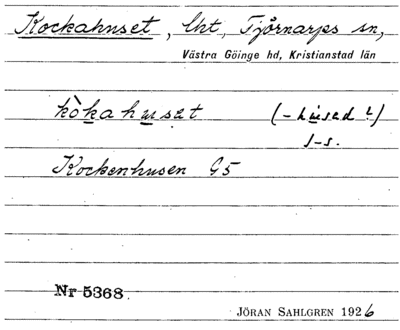 Kockahuset, lht, Tjörnarps sn,
Västra Göinge hd, Kristianstad län
kòkahuset (-hused?)
s-s.
Kockenhusen G5
Nr 5368.
JÖRAN SAHLGREN 1926